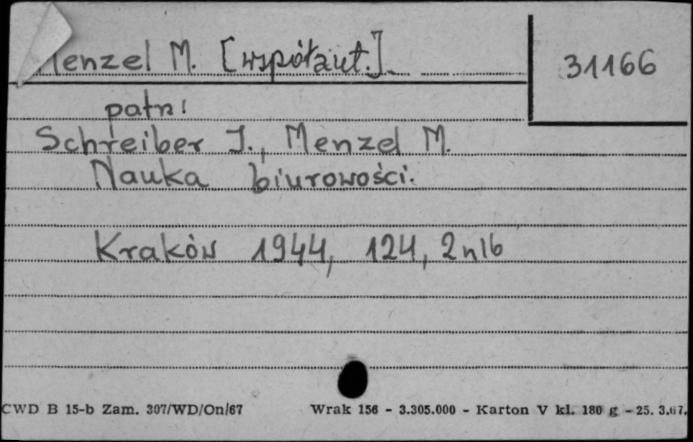 Menzel M. [współaut.]
31166
patrz:
Schreiber J., Menzel M.
Nauka biurowości.
Kraków 1944, 124, 2nlb
CWD B 15-b Zam. 307/WD/On/67 Wrak 156 - 3.305.000 - Karton V kl. 180 g - 25. 3.67.